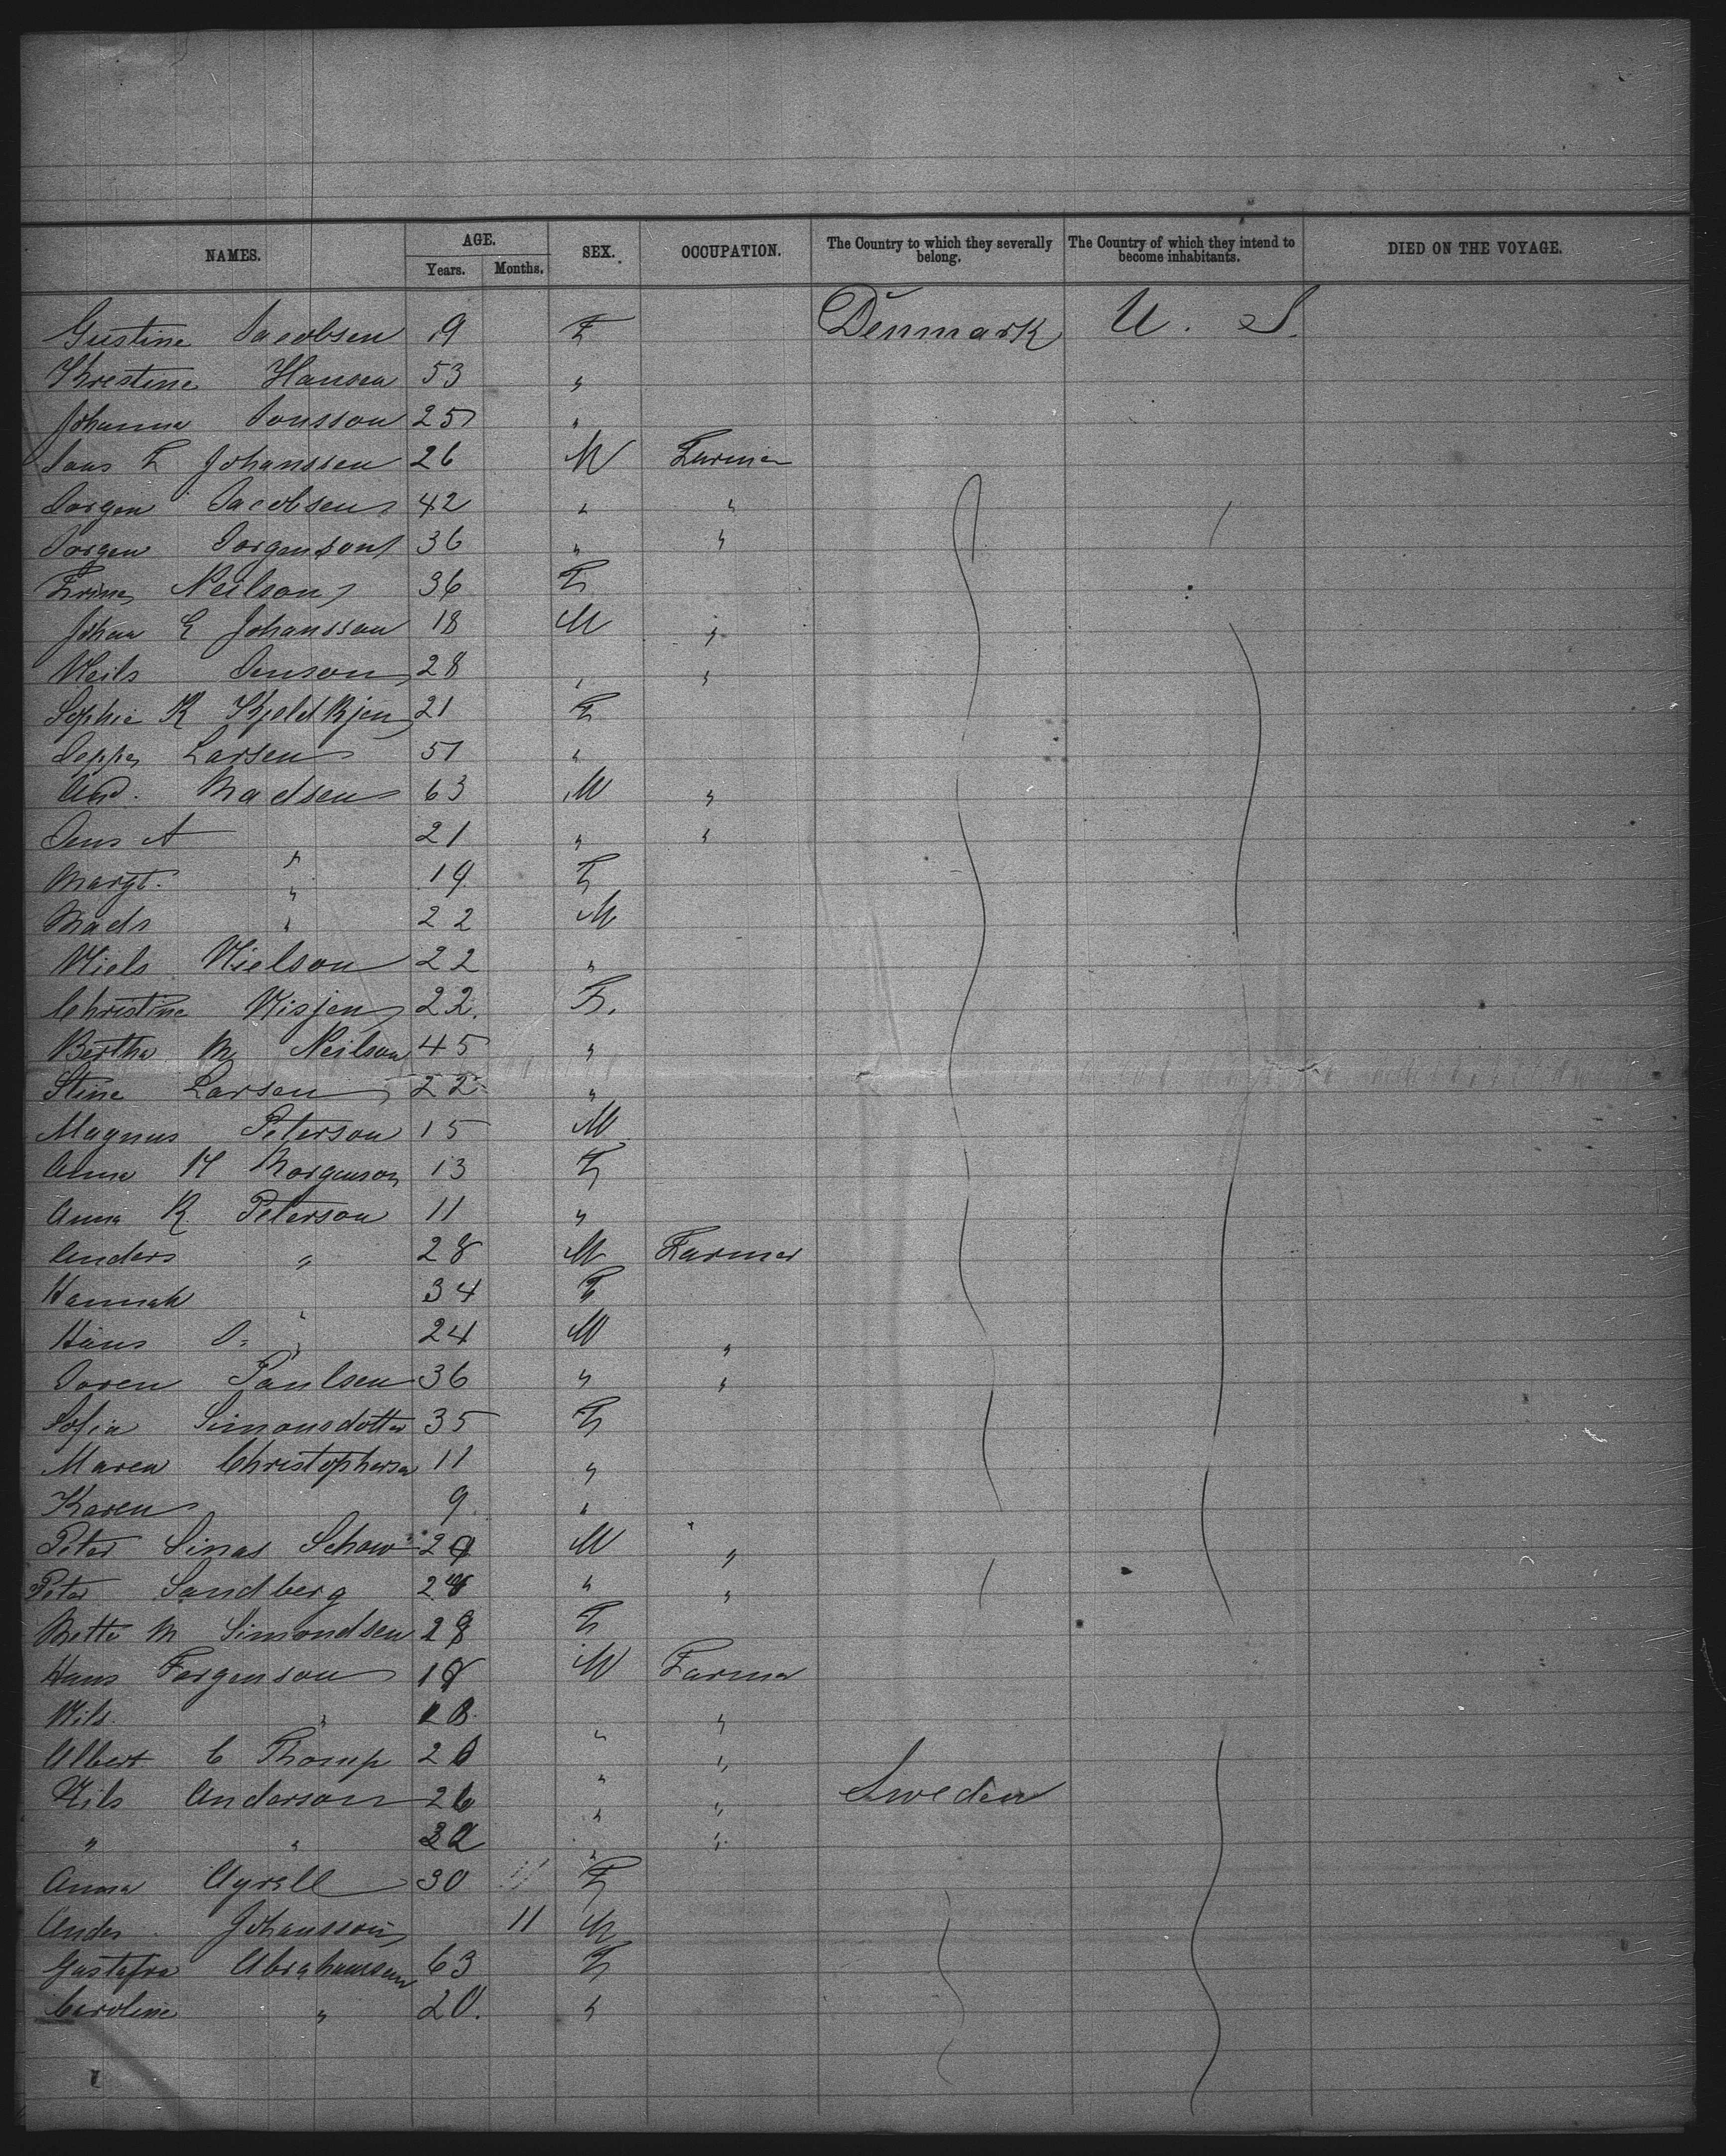 NAMES. AGE. SEX. OCCUPATION. The Country to which they severally belong. The Country of which they intend to become inhabitants. DIED ON THE VOYAGE.
Years. Months.
Gustine Jacobsen 9 F Denmark U. S.
Krestine Hansen 53 "
Johanna Jonsson 25 "
Jans F Johanssen 26 M Farmer
Jorgen Jacobsen 42 " "
Jorgen Jorgenson 36 " "
Trine Neilson 36 F
Johan E Johansson 18 M "
Neils Jenson 28 " "
Sophie K 21 F
Jeppe Larsen 51 "
And. Madsen 63 M "
Jens A " 21 " "
Margt. " 19 F
Mads " 22 M
Niels Nielson 22 "
Christine Nisjen 22. F.
Bertha M Neilson 45 "
Stine Larsen 22 "
Magnus Peterson 15 M
Anna M Morgenson 13 F
Anna K. Peterson 11 "
Anders " 28 M Farmer
Hannah " 34 F
Hans J. " 24 M "
Soren Paulsen 36 " "
Sofia Simonsdotter 35 F
Maren Christophersen 11 "
Karen 9 "
Peter Sinas Schow 29 M "
Peter Sandberg 24 " "
Mette M Simondsen 28 F
Hans Forgenson 18 M Farmer
Nils " " "
Albert C Thomp 20 " "
Nils Anderson 26 " " Sweden
" " 32 " "
Anna Ayrell 30 F
Anders Johansson 11 M
Gustafva Abrahamson 63 F
Caroline " 20. "